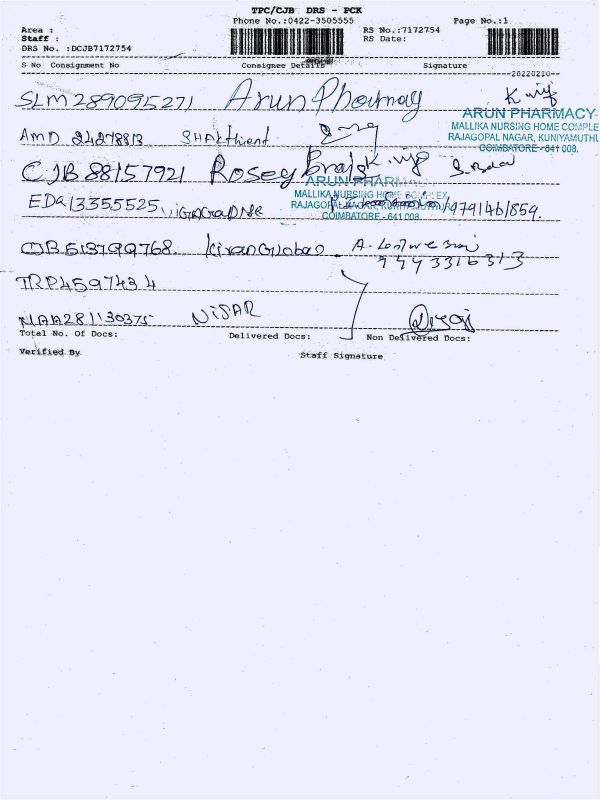 TPC/CJB DRS - PCK
Phone No.:0422-3505555 Page No.:1
Area :
Staff : RS No.:7172754
DRS No. :DCJB7172754 RS Date:
S No Consignment No Consignee Details Signature
--20220210--
SLM289095271 Arun Pharmacy
ARUN PHARMACY
MALLIKA NURSING HOME COMPLE
RAJAGOPAL NAGAR, KUNIYAMUTHU
COIMBATORE - 641 008.
AMD 24278813
CJB 88157921 Rosey
ARUN PHARMA
MALLIKA NURSING HOME COMPLEX
RAJAGOPAL NAGAR,
COIMBATORE - 641 008.
EDA13355525 9791461859.
513799768. A.
9443316313
TRP4597434
MAA281130375 NISAR
Total No. Of Docs: Delivered Docs: Non Delivered Docs:
Verified By Staff Signature